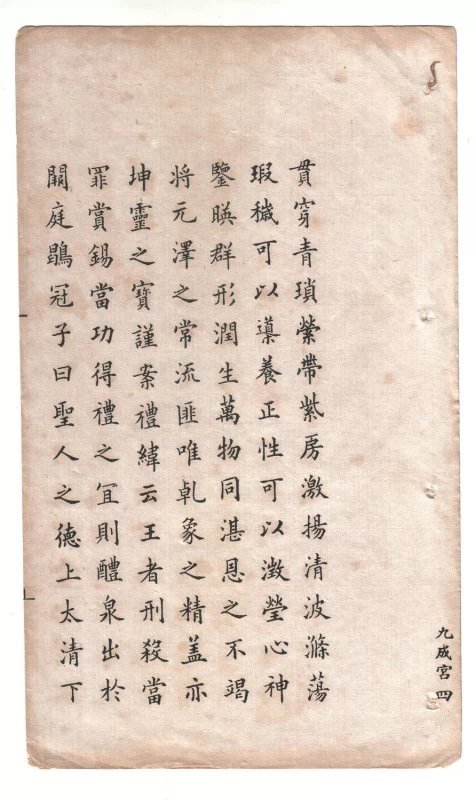 九成宮四
貫穿青瑣縈帶紫房激揚清波滌蕩
瑕穢可以導養正性可以澂瑩心神
鑒暎群形潤生萬物同湛恩之不竭
將元澤之常流匪唯乹象之精盖亦
坤靈之寶謹案禮緯云王者刑殺當
罪賞錫當功得禮之冝則醴泉出於
闕庭鶡冠子曰聖人之徳上太清下